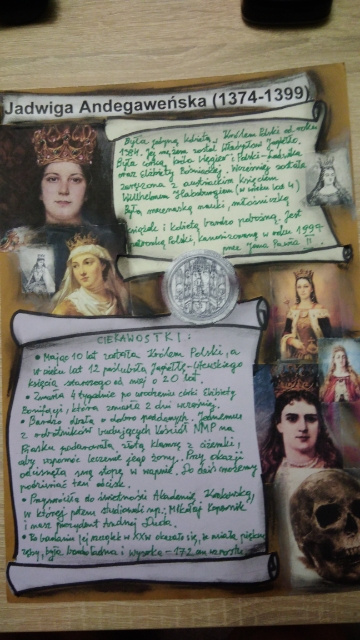 Jadwiga Andegaweńska (1374-1399)
Była jedyną kobietą Królem Polski od roku
1384. Jej mężem został Władysław Jagiełło.
Była córką króla Węgier i Polski - Ludwika
oraz Elżbiety Bośniaczki. Wcześniej została
zaręczona z austriackim księciem
Wilhelmem Habsburgiem (w wieku lat 4)
Była nauki, miłośniczką
książek i kobietą bardzo pobożną. Jest
patronką Polski, kanonizowaną w roku 1997
przez Jana Pawła II.
CIEKAWOSTKI:
• Mając 10 lat została Królem Polski, a
w wieku lat 12 poślubiła Jagiełłę - litewskiego
księcia starszego od niej o 20 lat.
• Zmarła 4 tygodnie po urodzeniu córki Elżbiety
Bonifacji, która zmarła 2 dni wcześniej.
• Bardzo dbała o dobro poddanych. Jednemu
z robotników budujących kościół NMP na
Piasku podarowała złotą klamrę z ciżemki,
aby wspomóc leczenie jego żony. Przy okazji
odcisnęła swą stopę w wapnie. Do dziś możemy
podziwiać ten odcisk.
• Przywróciła do świetności Akademię Krakowską,
w której potem studiowali np.: Mikołaj Kopernik
i nasz prezydent Andrzej Duda.
• Po badaniu jej szczątek w XXw okazało się, że miała piękne
zęby, była bardzo ładna i wysoka - 172 cm wzrostu.